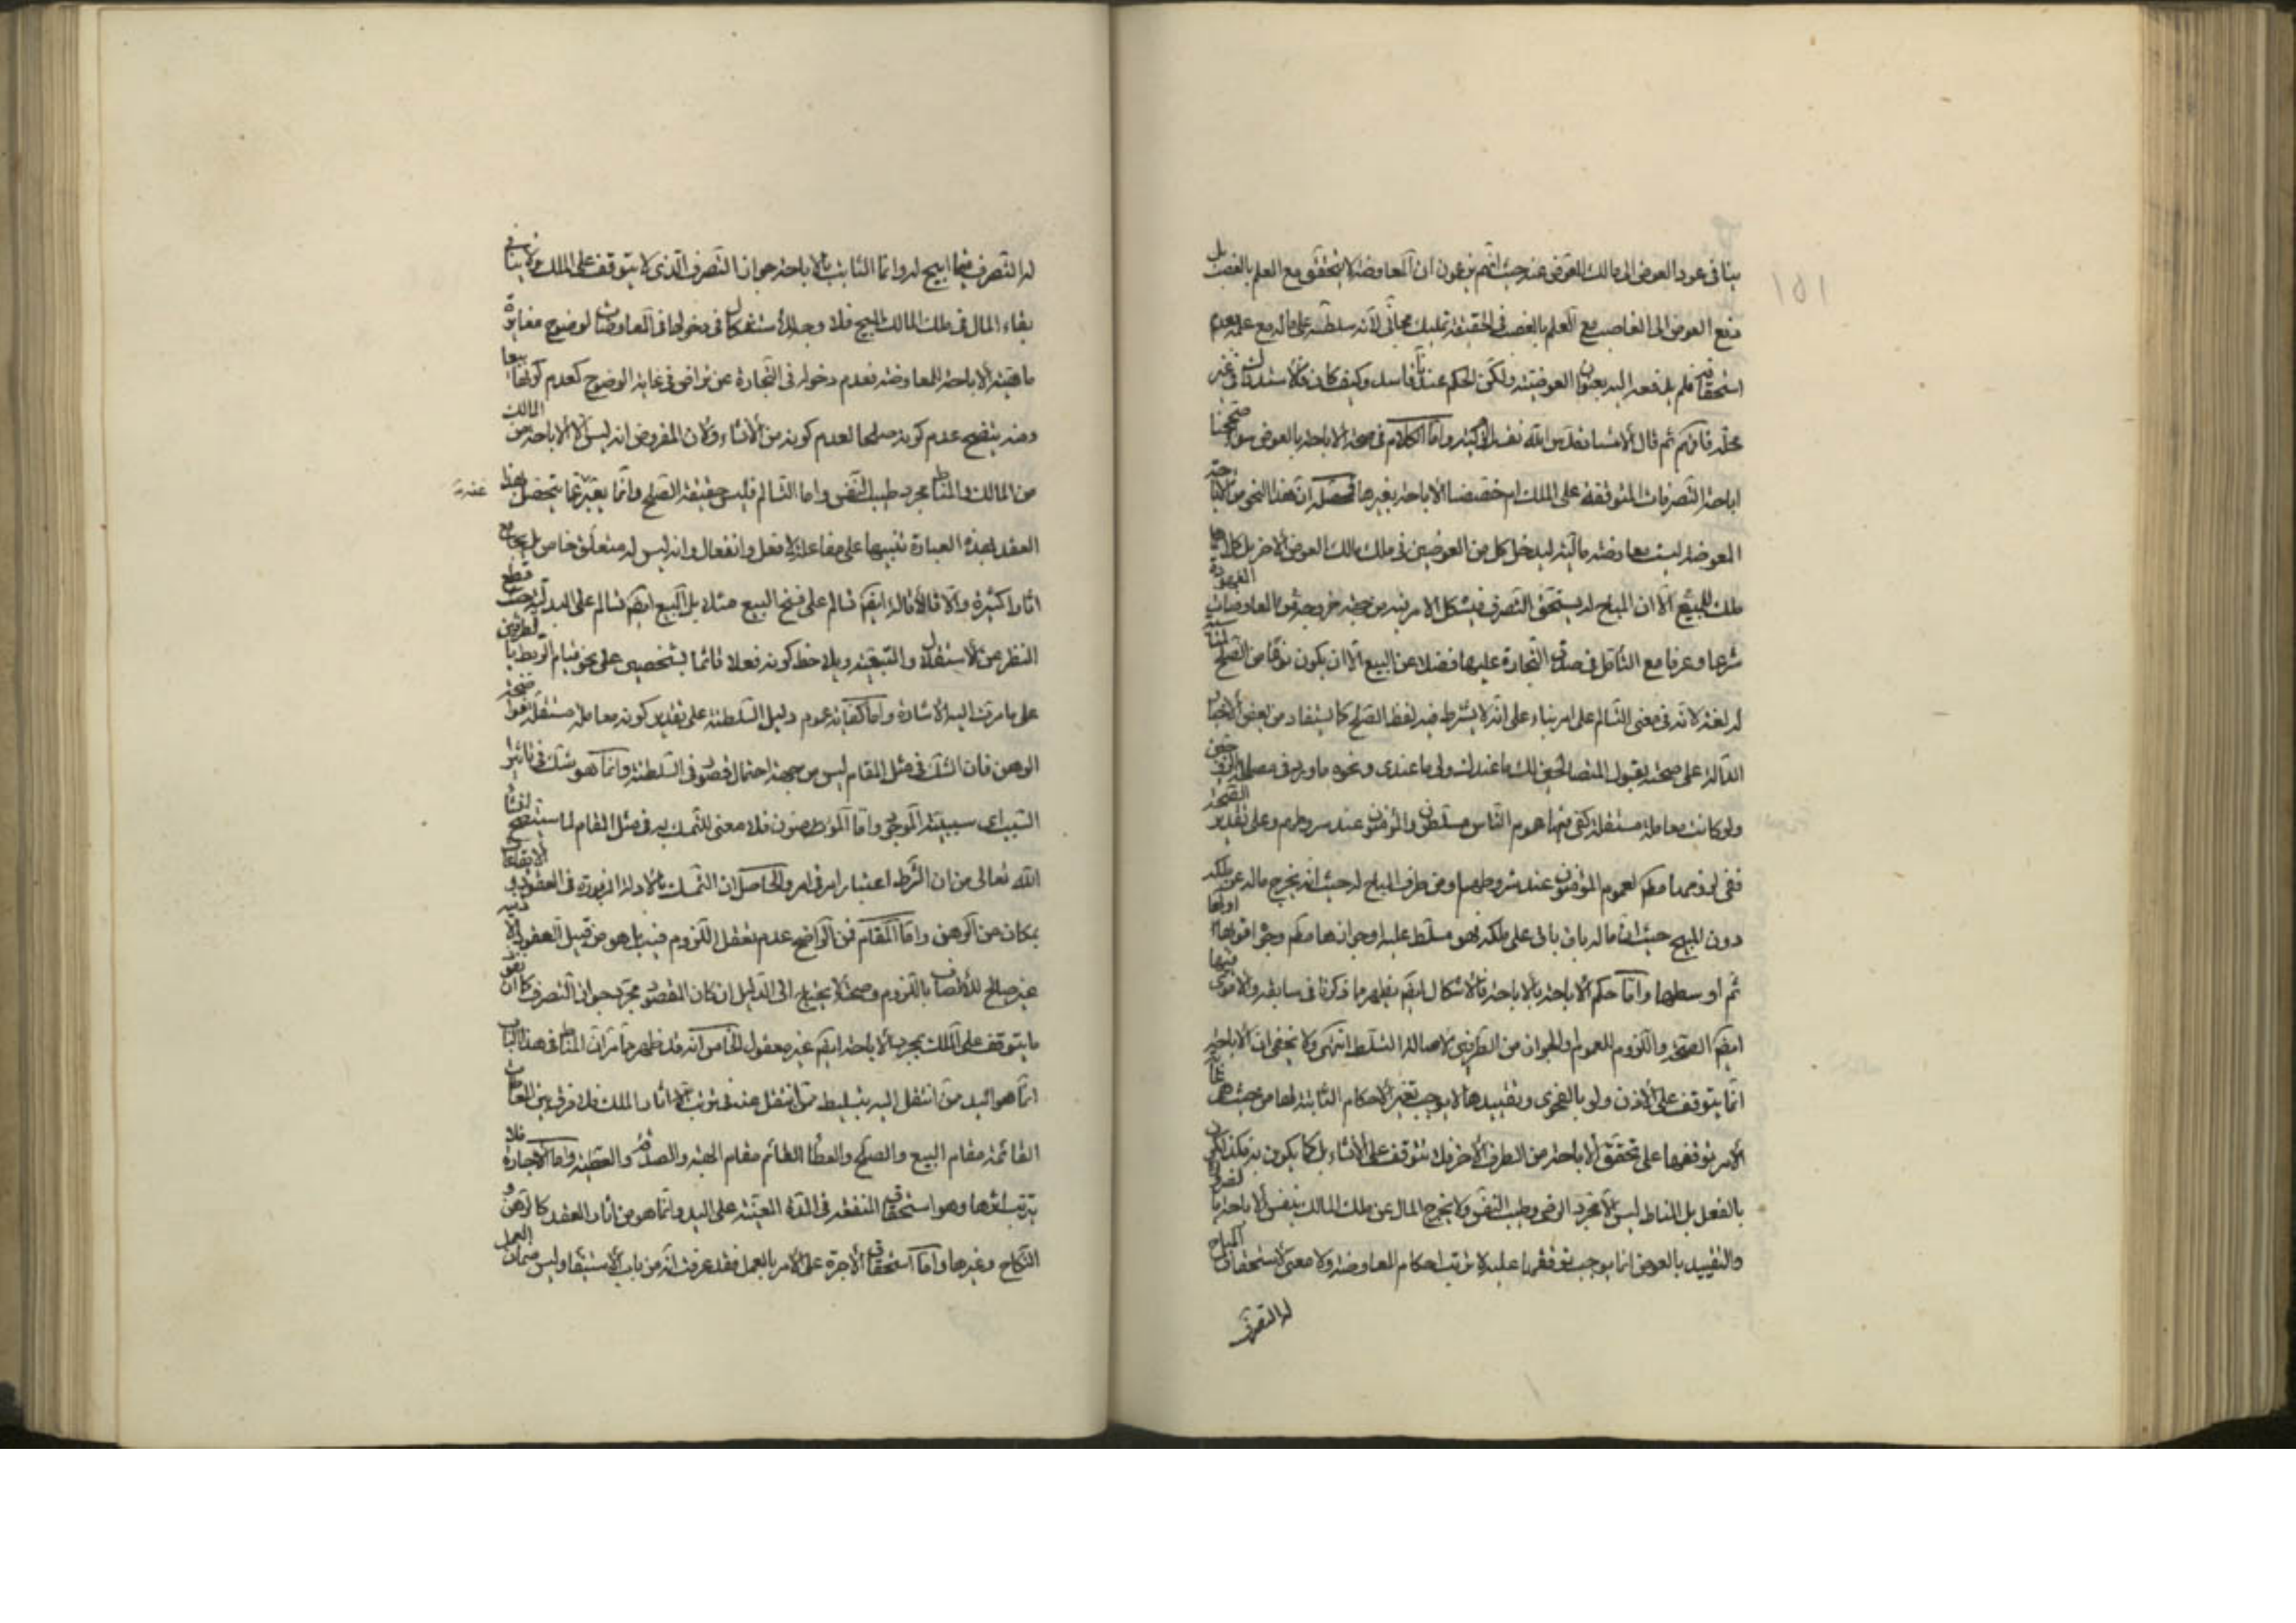 ١٥١
ينافى عود العوض الى مالك المعوض عنه حيث انهم يزعمون ان المعاوضة لا يتحقق مع العلم بالغصب بل
دفع العوض الى الغاصب مع العلم بالغصب فى الحقيقة تمليك مجانى لانه سلطه على ماله مع علمه بعدم
استحقاقه فلم يدفعه اليه بعنوان العوضية ولكن الحكم عندنا فاسد وكيف كان فالاستدلال فى غير
محله فافهم ثم قال الاستاد قدس الله نفسه الزكية واما الكلام فى صحة الاباحة بالعوض سواء صححنا
اباحة التصرفات المتوقفة على الملك ام خصصنا الاباحة بغيرها فمحصله ان هذا النحو من الاباحة
المعوضة ليست معاوضة مالية ليدخل كل من العوضين فى ملك مالك العوض الاخر بل كلاهما
ملك للمبيح الا ان المباح له يستحق التصرف فيشكل الامر فيه من جهة خروجه عن المعاوضات المعهودة
شرعا وعرفا مع التأمل فى صدق التجارة عليها فضلا عن البيع الا ان يكون نوعا من الصلح لمناسبته
له لغة لانه فى معنى التسالم على امر بناء على انه لا يشترط فيه لفظ الصلح كما يستفاد من بعض الاخبار
الدالة على صحته بقول المتصالحين لك ما عندك ولى ما عندى ونحوه ما ورد فى مصالحة الزوجين
ولو كانت معاملة مستقلة كفى فيها عموم الناس مسلطون والمؤمنون عند شروطهم وعلى تقدير الصحة
ففى لزومها مطم لعموم المؤمنون عند شروطهم او من طرف المباح له حيث انه يخرج ماله عن ملكه
دون المبيح حيث ان ماله باق على ملكه فهو مسلط عليه او جوازها مطم وجوه اقواها اولها
ثم اوسطها واما حكم الاباحة بالاباحة فالاشكال ايضم يظهر مما ذكرنا فى سابقه والاقوى فيها
ايضم الصحة واللزوم للعموم او الجواز من الطرفين لاصالة التسلط انتهى ولا يخفى ان الاباحة
انما يتوقف على الاذن ولو بالفحوى وتقييدها لا يوجب تغير الاحكام الثابتة لها من حيث هى غاية
الامر توقفها على تحقق الاباحة من الطرف الاخر بل تتوقف على الانشاء بل كما يكون به فكذلك يكون
بالفعل بل المناط ليس الا مجرد الرضى وطيب النفس ولا يخرج المال عن ملك المالك بنفس الاباحة
والتقييد بالعوض انما يوجب توقفها عليه لا ترتب احكام المعاوضة ولا معنى لاستحقاق المباح
له التصرف
له التصرف فيما ابيح له وانما الثابت بالاباحة جواز التصرف الذى لا يتوقف على الملك ولا ينافى
بقاء المال فى ملك المالك المبيح فلا وجه للاستشكال فى دخولها فى المعاوضات لوضوح مغايرة
ماهية الاباحة للمعاوضة فعدم دخوله فى التجارة عن تراض فى غاية الوضوح كعدم كونها بيعا
ومنه يتضح عدم كونه صلحا لعدم كونه من الانشاء وكان المفروض انه ليس الا الاباحة من المالك
من المالك والمناط مجرد طيب النفس واما التسالم فليس حقيقة الصلح وانما يعبر عما يتحصل بهذا
العقد بهذه العبارة تنبيها على مفاعلة لا فعل وانفعال وانه ليس له متعلق خاص بل يجامع
اثارا كثيرة والا فالاقالة ايضم تسالم على فسخ البيع مثلا بل البيع ايضم تسالم على البدلية حيث قطع
النظر عن الاستقلال والتبعية ويلاحظ كونه فعلا قائما بشخصين على نحو قيام الربط بالطرفين
على ما مرت اليه الاشارة واما كفاية عموم دليل السلطنة على تقدير كونه معاملة مستقلة فواضحة
الوهن فان الشك فى مثل المقام ليس من جهة احتمال قصور فى السلطنة وانما هو شك فى تاثير
السبب اى سببية الموجود واما المؤمنون فلا معنى للتمسك به فى مثل المقام لما ستتضح انشاء
الله تعالى من ان الشرط اعتبار امر فى امر والحاصل ان التمسك بالادلة المزبورة فى العقود والايقاعات
بمكان من الوهن واما المقام فمن الواضح عدم تعقل اللزوم فيه بل هو من قبيل العقود الاذنية
غير صالح للاتصاف باللزوم وصحته لا يحتاج الى الدليل ان كان المقصود مجرد جواز التصرف كما ان نفوذ
ما يتوقف على الملك بمجرد الاباحة ايضم غير معقول الخامس انه قد ظهر مما مر ان المناط فى هذا الباب
انما هو اليد ممن انتقل اليه بتسليط من انتقل عنه فى ترتب اثار الملك فلا فرق بين المعاطات
القائمة مقام البيع والصلح والعطاء القائم مقام الهبة والصدقة والعطية واما الاجارة فلا
يترتب اثرها وهو استحقاق المنفعة فى المدة المعينة على اليد وانما هو من اثار العقد كالرهن و
النكاح وغيرها واما استحقاق الاجرة على الامر بالعمل فقد عرفت انه من باب الاستيفاء وليس ضمان العمل